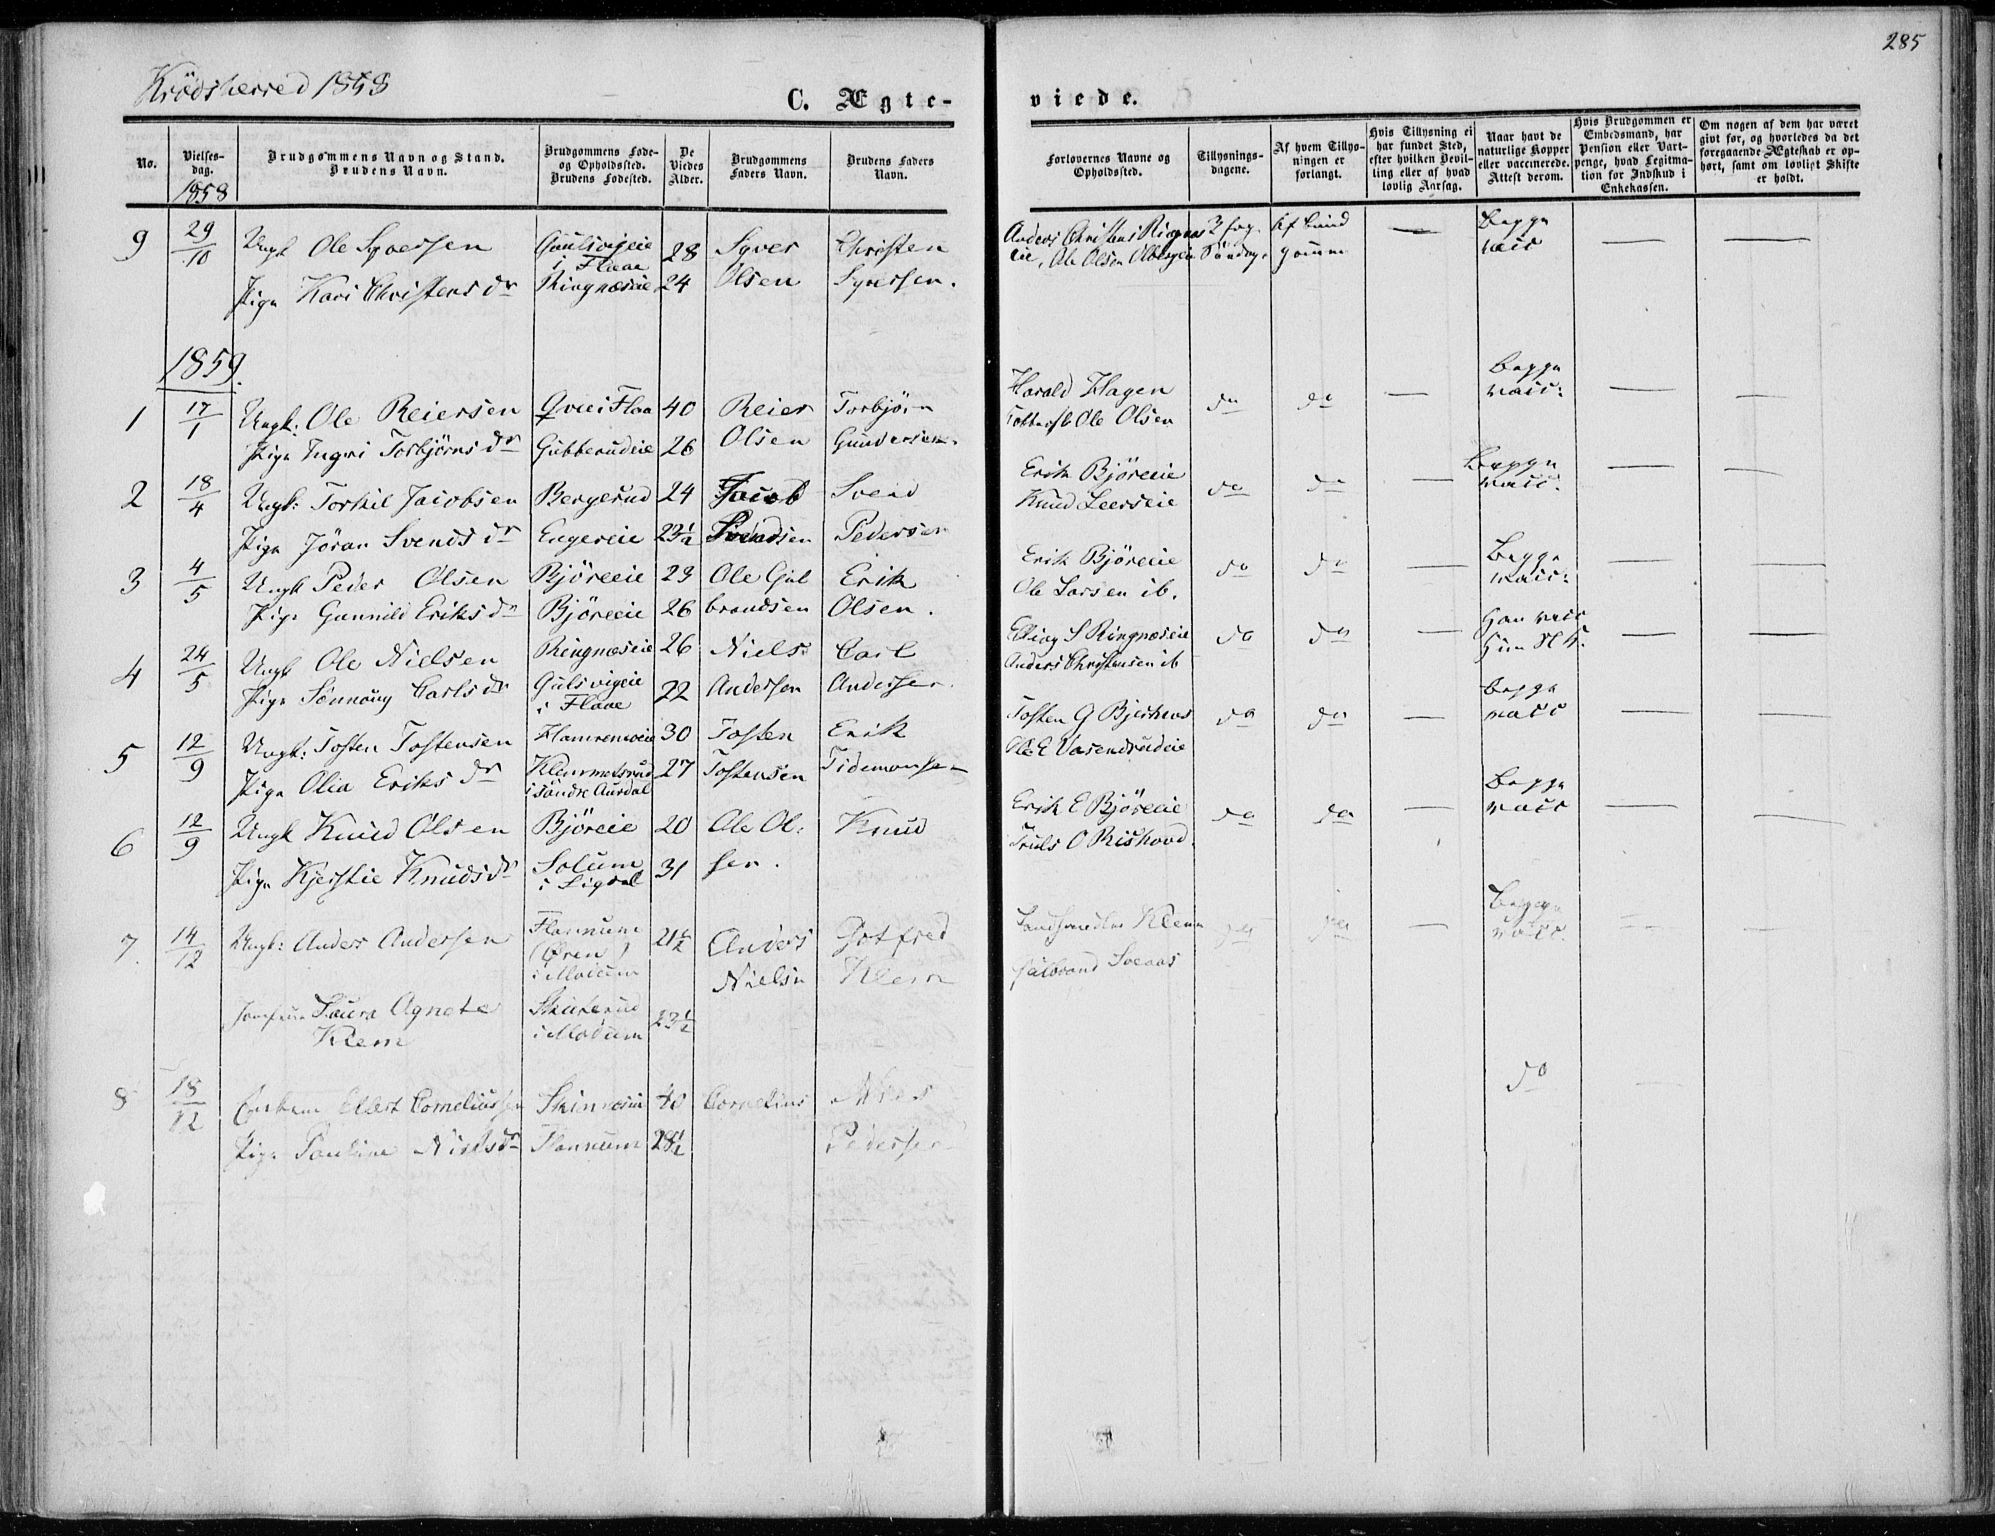 285
Krödsherred 1858
C. Ægte-
viede.
No.
Vielses-
dag.
Brudgommens Navn og Stand.
Brudens Navn.
Brudgommens Føde-
og Opholdssted.
Brudens Fødested.
De
Viedes
Alder.
Brudgommens
Faders Navn.
Brudens Faders
Navn.
Forlovernes Navne og
Opholdssted.
Tillysnings-
dagene.
Af hvem Tillys-
ningen er
forlangt.
Hvis Tillysning ei
har fundet Sted,
efter hvilken Bevil-
ling eller af hvad
lovlig Aarsag.
Naar havt de
naturlige Kopper
eller vaccinerede.
Attest derom.
Hvis Brudgommen er
Embedsmand, har
Pension eller Vart-
penge, hvad Legitima-
tion for Indskud i
Enkekassen.
Om nogen af dem har været
gift før, og hvorledes da det
foregaaende Ægteskab er op-
hørt, samt om lovligt Skifte
er holdt.
1858
9 29/10 Ungk Ole Syversen Gulsvigeie i Flaae 28 Syver Olsen Christen Syversen.
Pige Kari Christensdr Ringnæseie 24
Anders Christens Ringnæs
eie, Ole Olsen
3 Søndag. Af Brud gommen — Begge vacc — —
1859.
1 17/1 Ungk: Ole Reiersen Qvie i Flaa 40 Reier Olsen Torbjörn Gundersen.
Pige Ingri Torbjörnsdr Gubberudeie 26
Harald Hagen
Ole Olsen
do do — Begge vacc: — —
2 18/4 Ungk: Torkil Jacobsen Bergerud 24 Jacob Svendsen Svend Pedersen
Pige Jöran Svendsdr Engereie 23½
Erik Björeeie
Knud Leerseie
do do — Begge vacc. — —
3 4/5 Ungk Peder Olsen Björeeie 23 Ole Gulbrandsen Erik Olsen.
Pige Gunnild Eriksdr Björeeie 26
Erik Björeeie
Ole Larsen ib.
do do — Begge vacc: — —
4 24/5 Ungk Ole Nielsen Ringnæseie 26 Niels Andersen Carl Andersen.
Pige Sönnoug Carlsdr Gulsvigeie i Flaae 22
Elling S Ringnæseie
Anders Christensen ib
do do — Han vacc Hun N K. — —
5 12/9 Ungk: Tosten Tostensen Hamremoeie 30 Tosten Tostensen Erik Tidemansen
Pige Olia Eriksdr Klemmetsrud i Söndre Aurdal 27
Tosten G Bjerknes
Ole E Vasendrudeie
do do — Begge vacc — —
6 12/9 Ungk Knud Olsen Björeie 20 Ole Ol: sen. Knud
Pige Kjerstie Knudsdr Solum i Sigdal 31
Erik E Björeeie
Truls O Rishovd.
do do — Begge vacc — —
7. 14/12 Ungk: Anders Andersen Hannum (Øren) i Modum 21½ Anders Nielsen Gotfred Klem
Jomfrue Laura Agnete Klem Skuterud i Modum 23½
Landhandler Klem
do do — Begge vacc. — —
8 18/12 Enkem Corneliussen 40 Cornelius Niels Pedersen
Pige Pauline Nielsdr Hannum 28½
do —